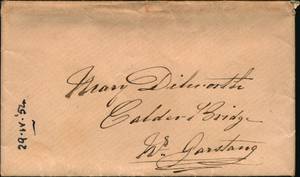 Mary Dilworth
Calder Bridge
Nr Garstang
29·IV·52